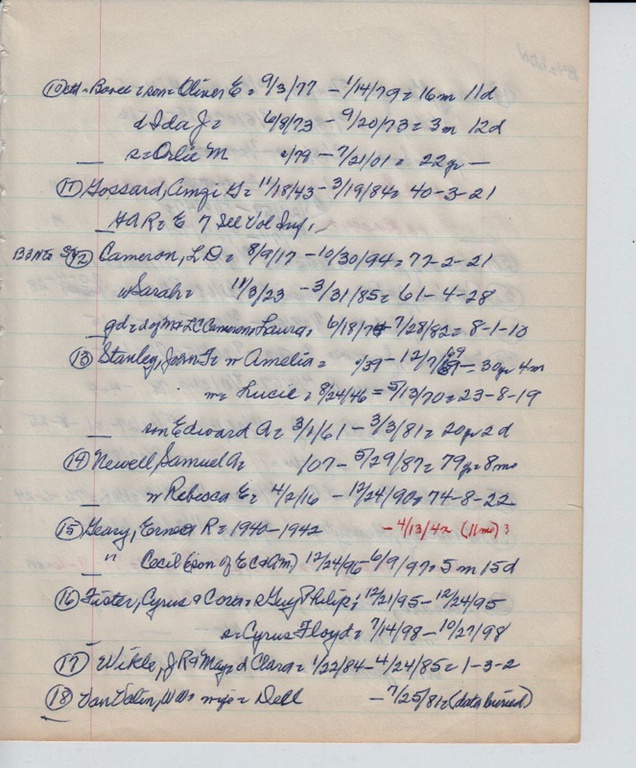 (10) son = Oliver E = 9/3/77 - 1/14/79 = 16m 11d
d Ida J = 6/8/73 - 9/20/73 = 3m 12d
s = Orlie M /79 - 7/21/01 = 22yr -
(11) Gossard, Amzi G = 11/18/43 - 3/19/84 = 40-3-21
E 7 See Vol
(12) Cameron, L.D. = 8/9/17 - 10/30/94 = 77-2-21
w Sarah = 11/3/23 - 3/31/85 = 61-4-28
gd = d of Mr + LC Cameron = Laura, 6/18/74 7/28/82 = 8-1-10
(13) Stanley, w Amelia = /39 - 12/7/69 - 30yr 4m
w = Lucie = 8/24/46 = 5/13/70 = 23-8-19
son Edward A = 3/1/61 - 3/3/81 = 20yr 2d
(14) Newell, Samuel A = /07 - 5/29/87 = 79yr 8mo
w Rebecca E = 4/2/16 - 12/24/90 = 74-8-22
(15) Geary, Ernest R = 1940-1942 - 4/13/42 (11mo) ?
" Cecil (son of E C + R M) 12/24/96 6/9/97 = 5m 15d
(16) Cyrus + Cora = s Guy Philip; 12/21/95 - 12/24/95
s = Cyrus Floyd = 7/14/98 - 10/27/98
(17) Wikle, J R + May = d Clara = 1/22/84 - 4/24/85 = 1-3-2
(18) Van Valin, wife = Dell - 7/25/81 = (date buried)